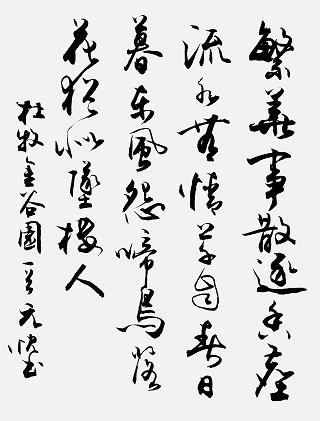 繁華事散逐香塵
流水無情草自春日
暮東風怨啼鳥落
花猶似墜樓人
杜牧金谷園 元 书